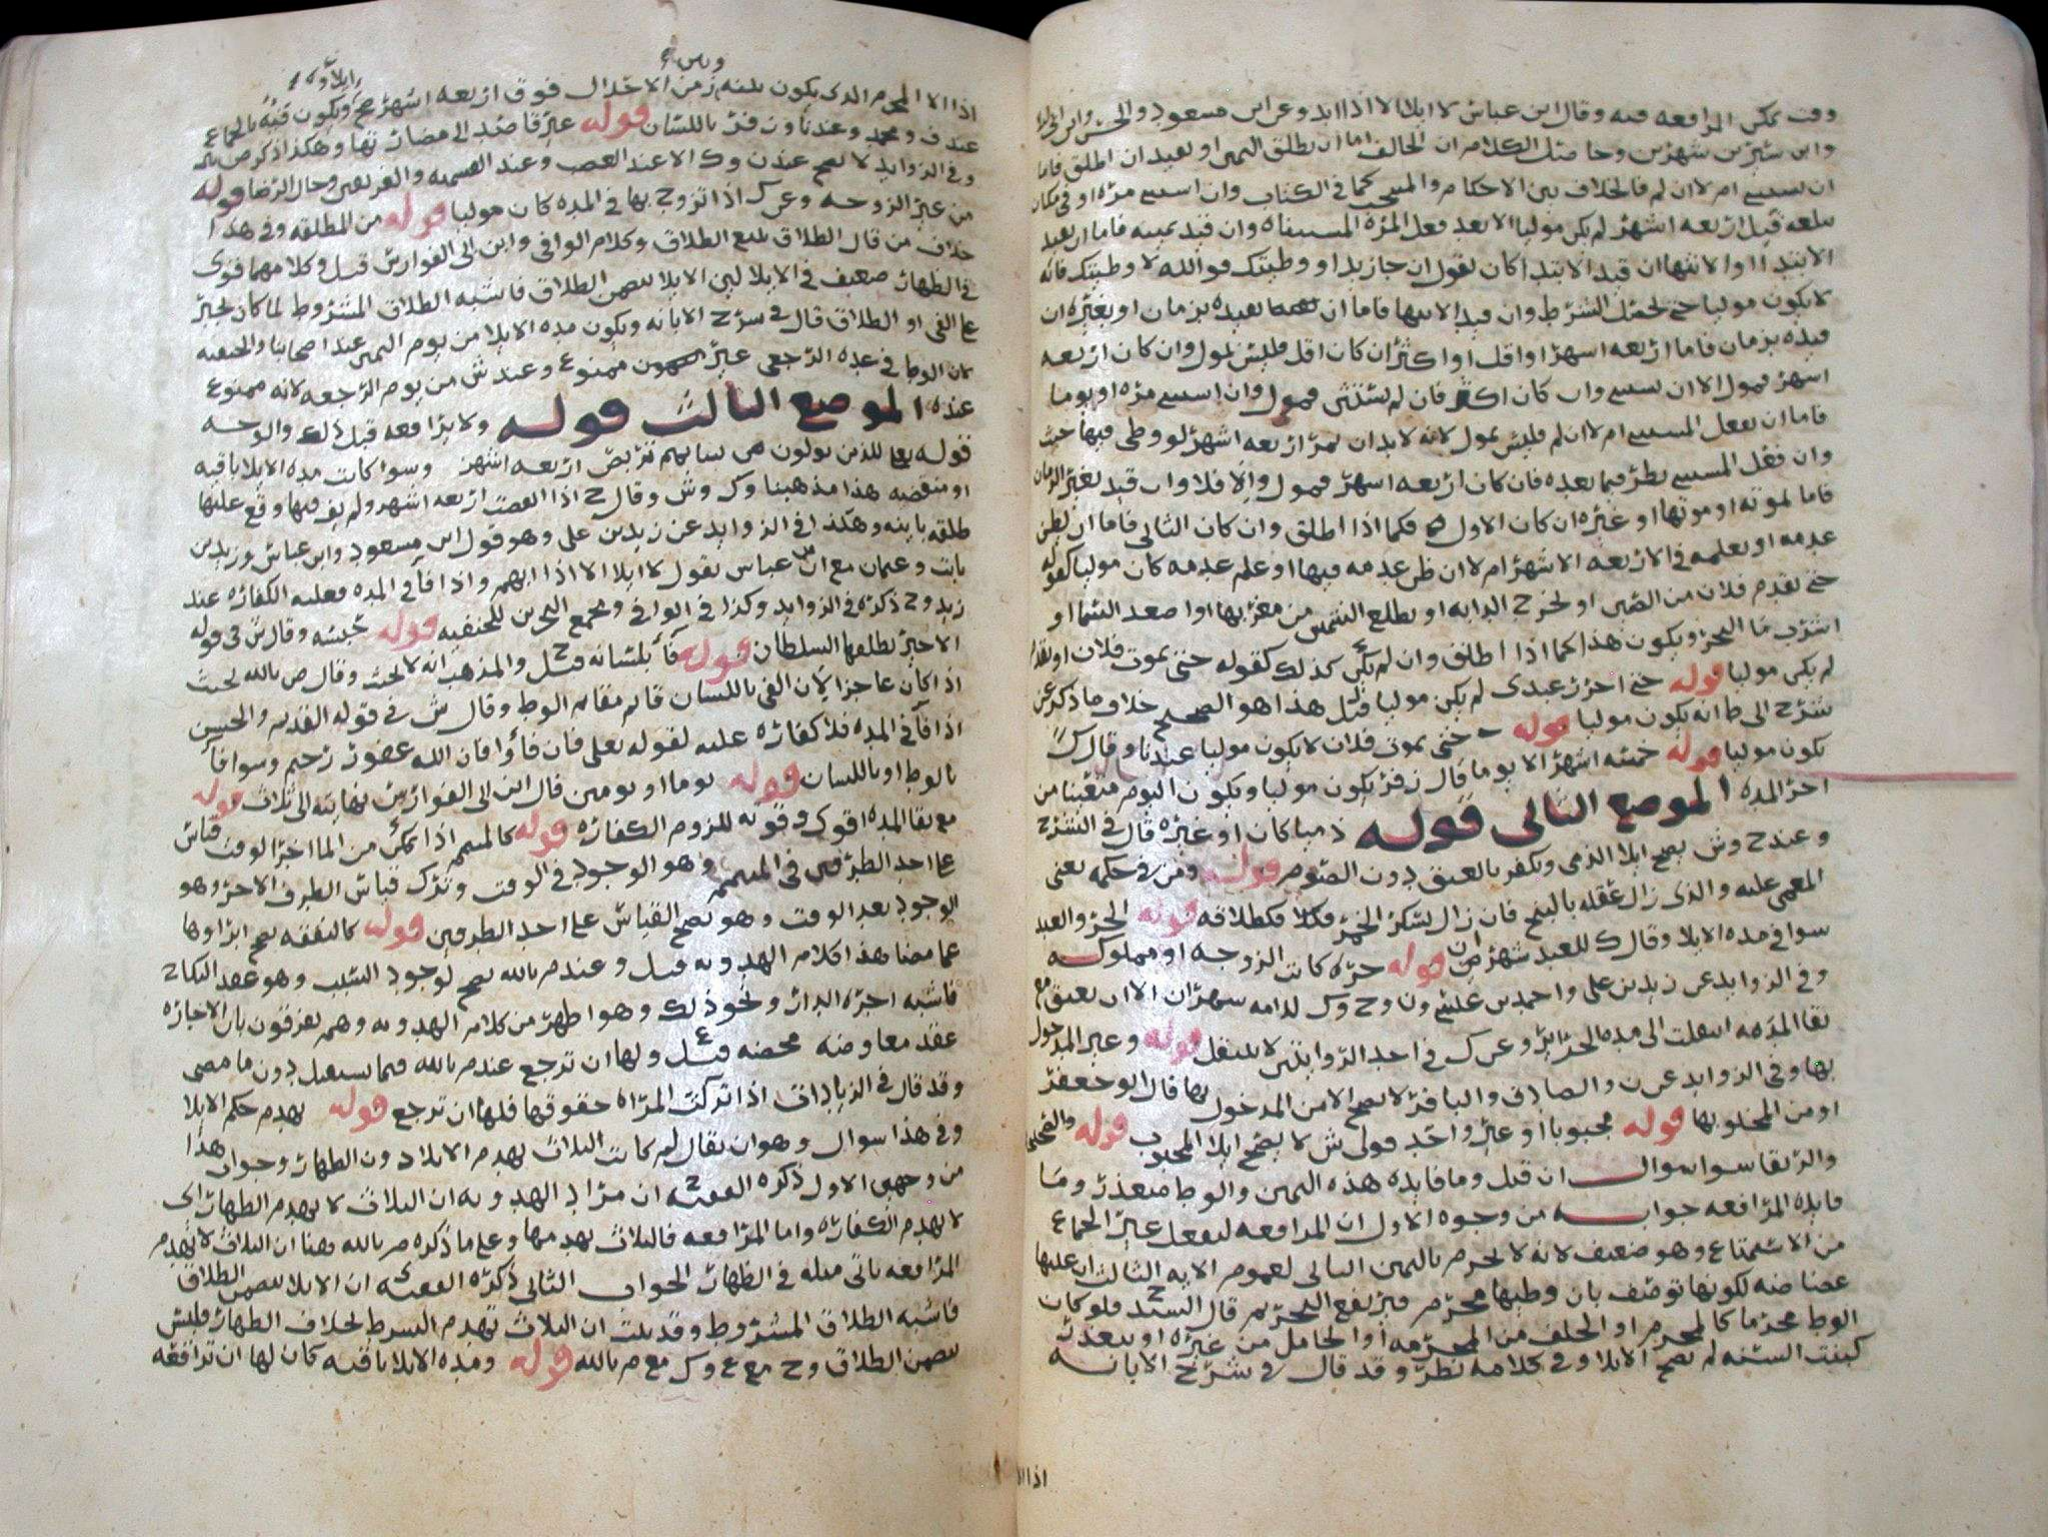 وقت يمكن المرافعه فيه وقال ابن عباس لا ايلا الا اذا ابد وعن ابن مسعود والحسن وابن ابي ليلى
وابن سيرين شهرين وحاصل الكلام ان الحالف اما ان يطلق اليمين او يقيد ان اطلق فاما
ان يستثنى ام لا ان لم فالخلاف بين الاحكام والمنتخب كما في الكتاب وان استثنى مره او في مكان
يبلغه قبل اربعه اشهر لم يكن موليا الا بعد فعل المره المستثناه وان قيد يمينه فاما ان يقيد
الابتدا او الانتها ان قيد الابتدا كان يقول ان جا زيد او وطيتك فوالله لا وطيتك فانه
لا يكون موليا حتى يحصل الشرط وان قيد الانتها فاما ان يقيده بزمان او بغيره ان
قيده بزمان فاما اربعه اشهر او اقل او اكثر ان كان اقل فليس بمول وان كان اربعه
اشهر فمول الا ان يستثنى وان كان اكثر فان لم يستثن فمول وان استثنى مره او يوما
فاما ان يفعل المستثنى ام لا ان لم فليس بمول لانه لا بد ان تمر اربعه اشهر لو وطى فيها حنث
وان فعل المستثنى نظر فيما بعده فان كان اربعه اشهر فمول والا فلا وان قيد بغير الزمان
فاما بموته او موتها او غيره ان كان الاول فكما اذا اطلق وان كان الثاني فاما ان يظن
عدمه او يعلمه في الاربعه الاشهر ام لا ان ظن عدمه فيها او علم عدمه كان موليا كقوله
حتى يقدم فلان من الصين او تخرج الدابه او تطلع الشمس من مغربها او اصعد السما او
اشرب ما البحر ويكون هذا كما اذا اطلق وان لم يكن كذلك كقوله حتى يموت فلان او يقدم
لم يكن موليا قوله حتى احرر عبدى لم يكن موليا قيل هذا هو الصحيح خلاف ما ذكر عن
شرح ابى طا انه يكون موليا قوله حتى يموت فلان لا يكون موليا عندنا وقال ك
يكون موليا قوله خمسه اشهر الا يوما قال زفر يكون موليا ويكون اليوم متعينا من
اخر المده الموضع الثاني قوله ذميا كان او غيره قال في الشرح
وعند ح وش يصح ايلا الذمى ويكفر بالعتق دون الصوم قوله ومن في حكمه يعنى
المغمى عليه والذى زال عقله بالبنج فان زال بسكر الخمر فكطلاقه قوله الحر والعبد
سوا في مده الايلا وقال ك للعبد شهران قوله حره كانت الزوجه او مملوكه
وفي الزوايد عن زيد بن على واحمد بن عيسى ون وح وك للامه شهران الا ان يعتق مع
بقا المده انتقلت الى مده الحراير وعن ك في احد الروايتين لا ينتقل قوله وغير المدخول
بها وفي الزوايد عن ن والصادق والباقر لا يصح الا من المدخول بها قال ابو جعفر
او من المخلو بها قوله مجبوبا او غيره واحد قولى ش لا يصح ايلا المجبوب قوله والصحيحه
والرتقا سوا سوال ان قيل وما فايده هذه اليمين والوط متعذر وما
فايده المرافعه جوابه من وجوه الاول ان المرافعه ليفعل غير الجماع
من الاستمتاع وهو ضعيف لانه لا يحرم باليمين الثاني لعموم الايه الثالث ان عليها
غضاضه لكونها توصف بان وطيها محرم فيرتفع التحريم قال السيد ح فلو كان
الوط محرما كالمحرم او الحلف من المحرمه او الحامل من غيره او يتعذر
كبنت السنه لم يصح الايلا وفي كلامه نظر وقد قال في شرح الابانه
اذا الا
اذا الا المحرم الذى يكون بينه زمن الاحلال فوق اربعه اشهر صح ويكون فيه بالجماع
عند ف ومحمد وعندنا ون وزفر باللسان قوله غير قاصد الى مضارتها وهكذا ذكر ص بالله
وفي الزوايد لا يصح عند ن وك الا عند الغضب وعند القسميه والفريقين وحال الرضا قوله
من غير الزوجه وعن ك اذا تزوج بها في المده كان موليا قوله من المطلقه وفي هذا
خلاف من قال الطلاق يتبع الطلاق وكلام الوافى وابن ابى الفوارس قيل وكلامهما قوى
في الظهار ضعيف في الايلا لان الايلا يتضمن الطلاق فاشبه الطلاق المشروط لما كان يجبر
على الفى او الطلاق قال في شرح الابانه ويكون مده الايلا من يوم اليمين عند اصحابنا والحنفيه
لان الوط في عده الرجعى غير ممنوع وعند ش من يوم الرجعه لانه ممنوع
عنده الموضع الثالث قوله ولا يرافعه قبل ذلك والوجه
قوله تعالى للذين يولون من نسايهم تربص اربعه اشهر وسوا كانت مده الايلا باقيه
او منقضيه هذا مذهبنا وك وش وقال ح اذا انقضت اربعه اشهر ولم يف فيها وقع عليها
طلقه باينه وهكذا في الزوايد عن زيد بن على وهو قول ابن مسعود وابن عباس وزيد بن
ثابت وعثمان مع ان عباس يقول لا ايلا الا اذا ابهم واذا فا في المده فعليه الكفاره عند
زيد وح ذكره في الزوايد وكذا في الوافى ومجمع البحرين للحنفيه قوله حبسه وقال ش في قوله
الاخير يطلقها السلطان قوله فا بلسانه قيل ح والمذهب انه لا يحنث وقال ص بالله يحنث
اذا كان عاجزا لان الفى باللسان قايم مقام الوط وقال ش في قوله القديم والحسن
اذا فا في المده فلا كفاره عليه لقوله تعلى فان فاوا فان الله غفور رحيم وسوا فا
بالوط او باللسان قوله يوما او يومين قال ابن ابى الفوارس نهايته الى ثلاث قوله
مع بقا المده اقوى وقوته للزوم الكفاره قوله كالمتيمم اذا تمكن من الما اخر الوقت قياس
على احد الطرفين في المتيمم وهو الوجود في الوقت وترك قياس الطرف الاخر وهو
الوجود بعد الوقت وهو يصح القياس على احد الطرفين قوله كالنفقه يصح ابراوها
عما مضا هذا كلام الهدويه قيل وعند م بالله يصح لوجود السبب وهو عقد النكاح
فاشبه اجره الدار ونحو ذلك وهو اظهر من كلام الهدويه وهم يفرقون بان الاجاره
عقد معاوضه محضه قيل ع ولها ان ترجع عند م بالله فيما يستقبل دون ما مضى
وقد قال في الزيادات اذا تركت المراه حقوقها فلها ان ترجع قوله يهدم حكم الايلا
وفي هذا سوال وهو ان يقال لم كانت الثلاث يهدم الايلا دون الظهار وجواب هذا
من وجهين الاول ذكره الفقيه ح ان مراد الهدويه ان الثلاث لا يهدم الظهار اى
لا يهدم الكفاره واما المرافعه فالثلاث يهدمها وعلى ما ذكره م بالله هنا ان الثلاث لا يهدم
المرافعه ياتى مثله في الظهار الجواب الثاني ذكره الفقيه ان الايلا يتضمن الطلاق
فاشبه الطلاق المشروط وقد بينت ان الثلاث تهدم الشرط بخلاف الظهار فليس
يتضمن الطلاق وح مع ع وك مع م بالله قوله ومده الايلا باقيه كان لها ان ترافعه